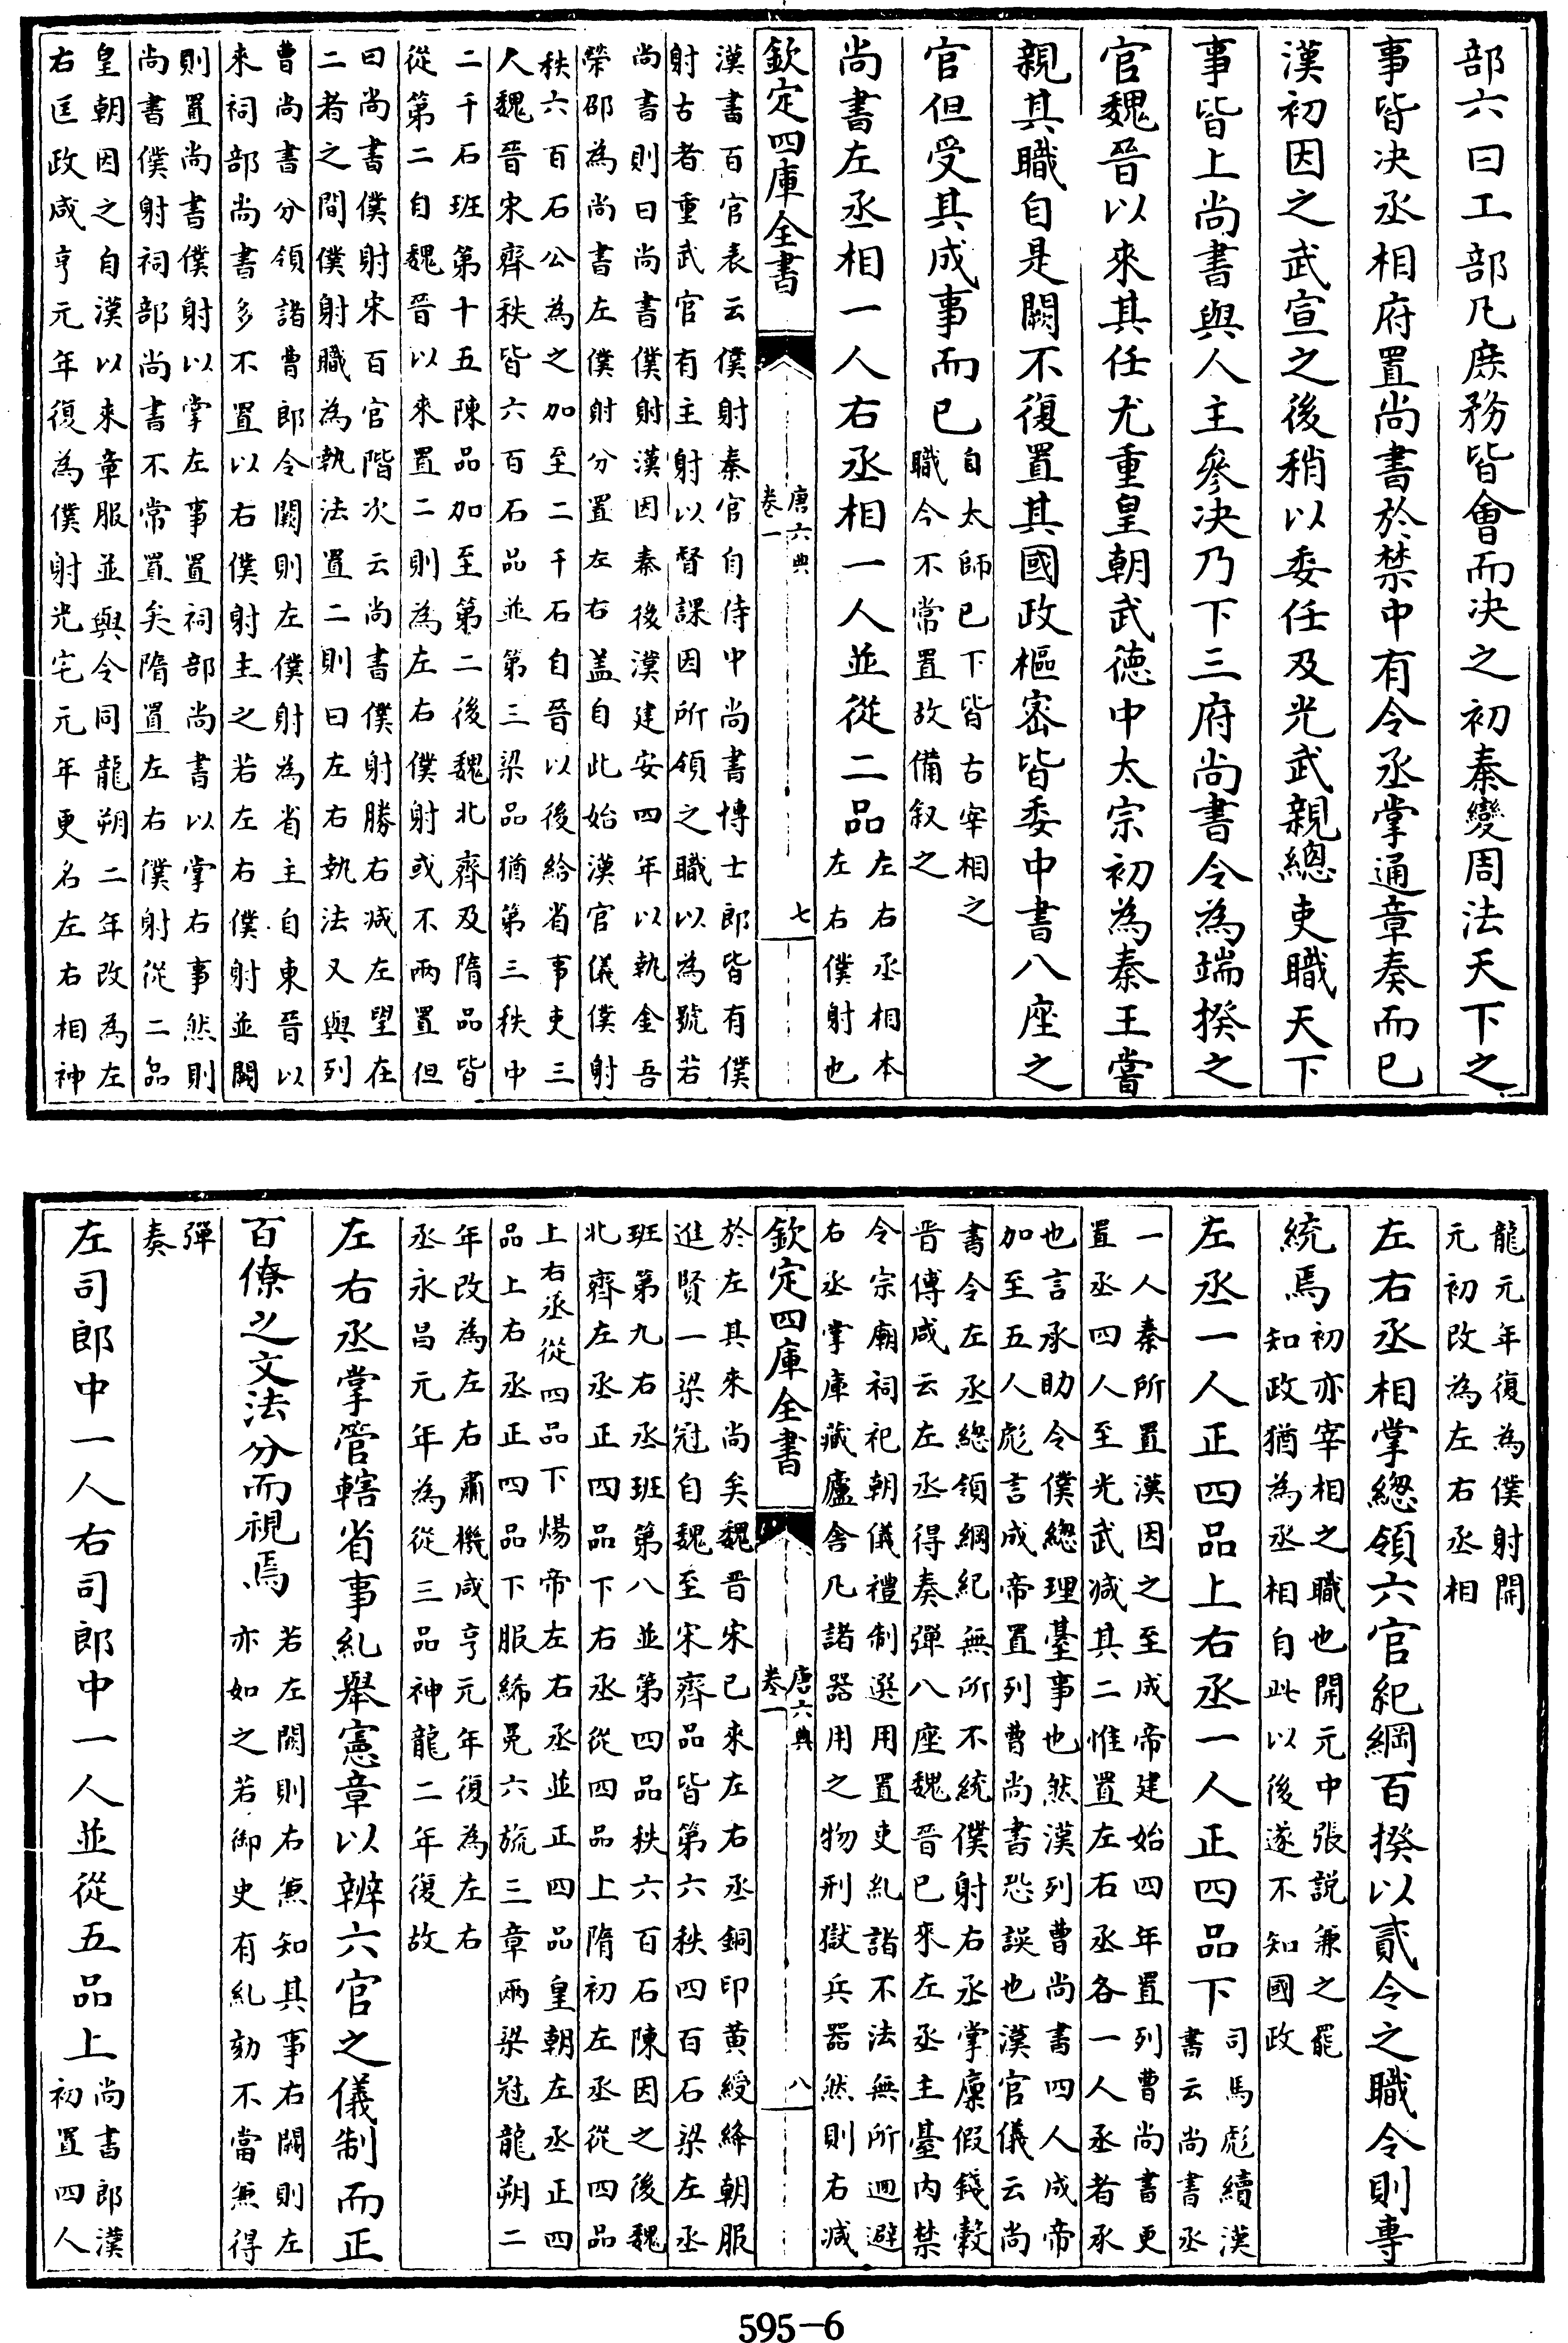 部六曰工部凡庶務皆會而決之初秦變周法天下之
事皆決丞相府置尚書於禁中有令丞掌通章奏而已
漢初因之武宣之後稍以委任及光武親總吏職天下
事皆上尚書與人主參決乃下三府尚書令為端揆之
官魏晉以來其任尤重皇朝武德中太宗初為秦王嘗
親其職自是闕不復置其國政樞密皆委中書八座之
官但受其成事而已自太師已下皆古宰相之
職今不常置故備叙之
尚書左丞相一人右丞相一人並從二品左右丞相本
左右僕射也
欽定四庫全書
唐六典
卷一
七
漢書百官表云僕射秦官自侍中尚書博士郎皆有僕
射古者重武官有主射以督課因所領之職以為號若
尚書則曰尚書僕射漢因秦後漢建安四年以執金吾
榮邵為尚書左僕射分置左右盖自此始漢官儀僕射
秩六百石公為之加至二千石自晉以後給省事吏三
人魏晉宋齊秩皆六百石品並第三梁品猶第三秩中
二千石班第十五陳品加至第二後魏北齊及隋品皆
從第二自魏晉以來置二則為左右僕射或不兩置但
曰尚書僕射宋百官階次云尚書僕射勝右減左望在
二者之間僕射職為執法置二則曰左右執法又與列
曹尚書分領諸曹郎令闕則左僕射為省主自東晉以
來祠部尚書多不置以右僕射主之若左右僕射並闕
則置尚書僕射以掌左事置祠部尚書以掌右事然則
尚書僕射祠部尚書不常置矣隋置左右僕射從二品
皇朝因之自漢以來章服並與令同龍朔二年改為左
右匡政咸亨元年復為僕射光宅元年更名左右相神
龍元年復為僕射開
元初改為左右丞相
左右丞相掌總領六官紀綱百揆以貳令之職令則專
統焉初亦宰相之職也開元中張說兼之罷
知政猶為丞相自此以後遂不知國政
左丞一人正四品上右丞一人正四品下司馬彪續漢
書云尚書丞
一人秦所置漢因之至成帝建始四年置列曹尚書更
置丞四人至光武減其二惟置左右丞各一人丞者承
也言承助令僕總理臺事也然漢列曹尚書四人成帝
加至五人彪言成帝置列曹尚書恐誤也漢官儀云尚
書令左丞總領綱紀無所不統僕射右丞掌廩假錢穀
晉傅咸云左丞得奏彈八座魏晉已來左丞主臺內禁
令宗廟祠祀朝儀禮制選用置吏糺諸不法無所迴避
右丞掌庫藏廬舍凡諸器用之物刑獄兵器然則右減
欽定四庫全書
唐六典
卷一
八
於左其來尚矣魏晉宋已來左右丞銅印黃綬絳朝服
進賢一梁冠自魏至宋齊品皆第六秩四百石梁左丞
班第九右丞班第八並第四品秩六百石陳因之後魏
北齊左丞正四品下右丞從四品上隋初左丞從四品
上右丞從四品下煬帝左右丞並正四品皇朝左丞正四
品上右丞正四品下服絺冕六旒三章兩梁冠龍朔二
年改為左右肅機咸亨元年復為左右
丞永昌元年為從三品神龍二年復故
左右丞掌管轄省事糺舉憲章以辨六官之儀制而正
百僚之文法分而視焉若左闕則右兼知其事右闕則左
亦如之若御史有糺劾不當兼得
彈
奏
左司郎中一人右司郎中一人並從五品上尚書郎漢
初置四人
595-6